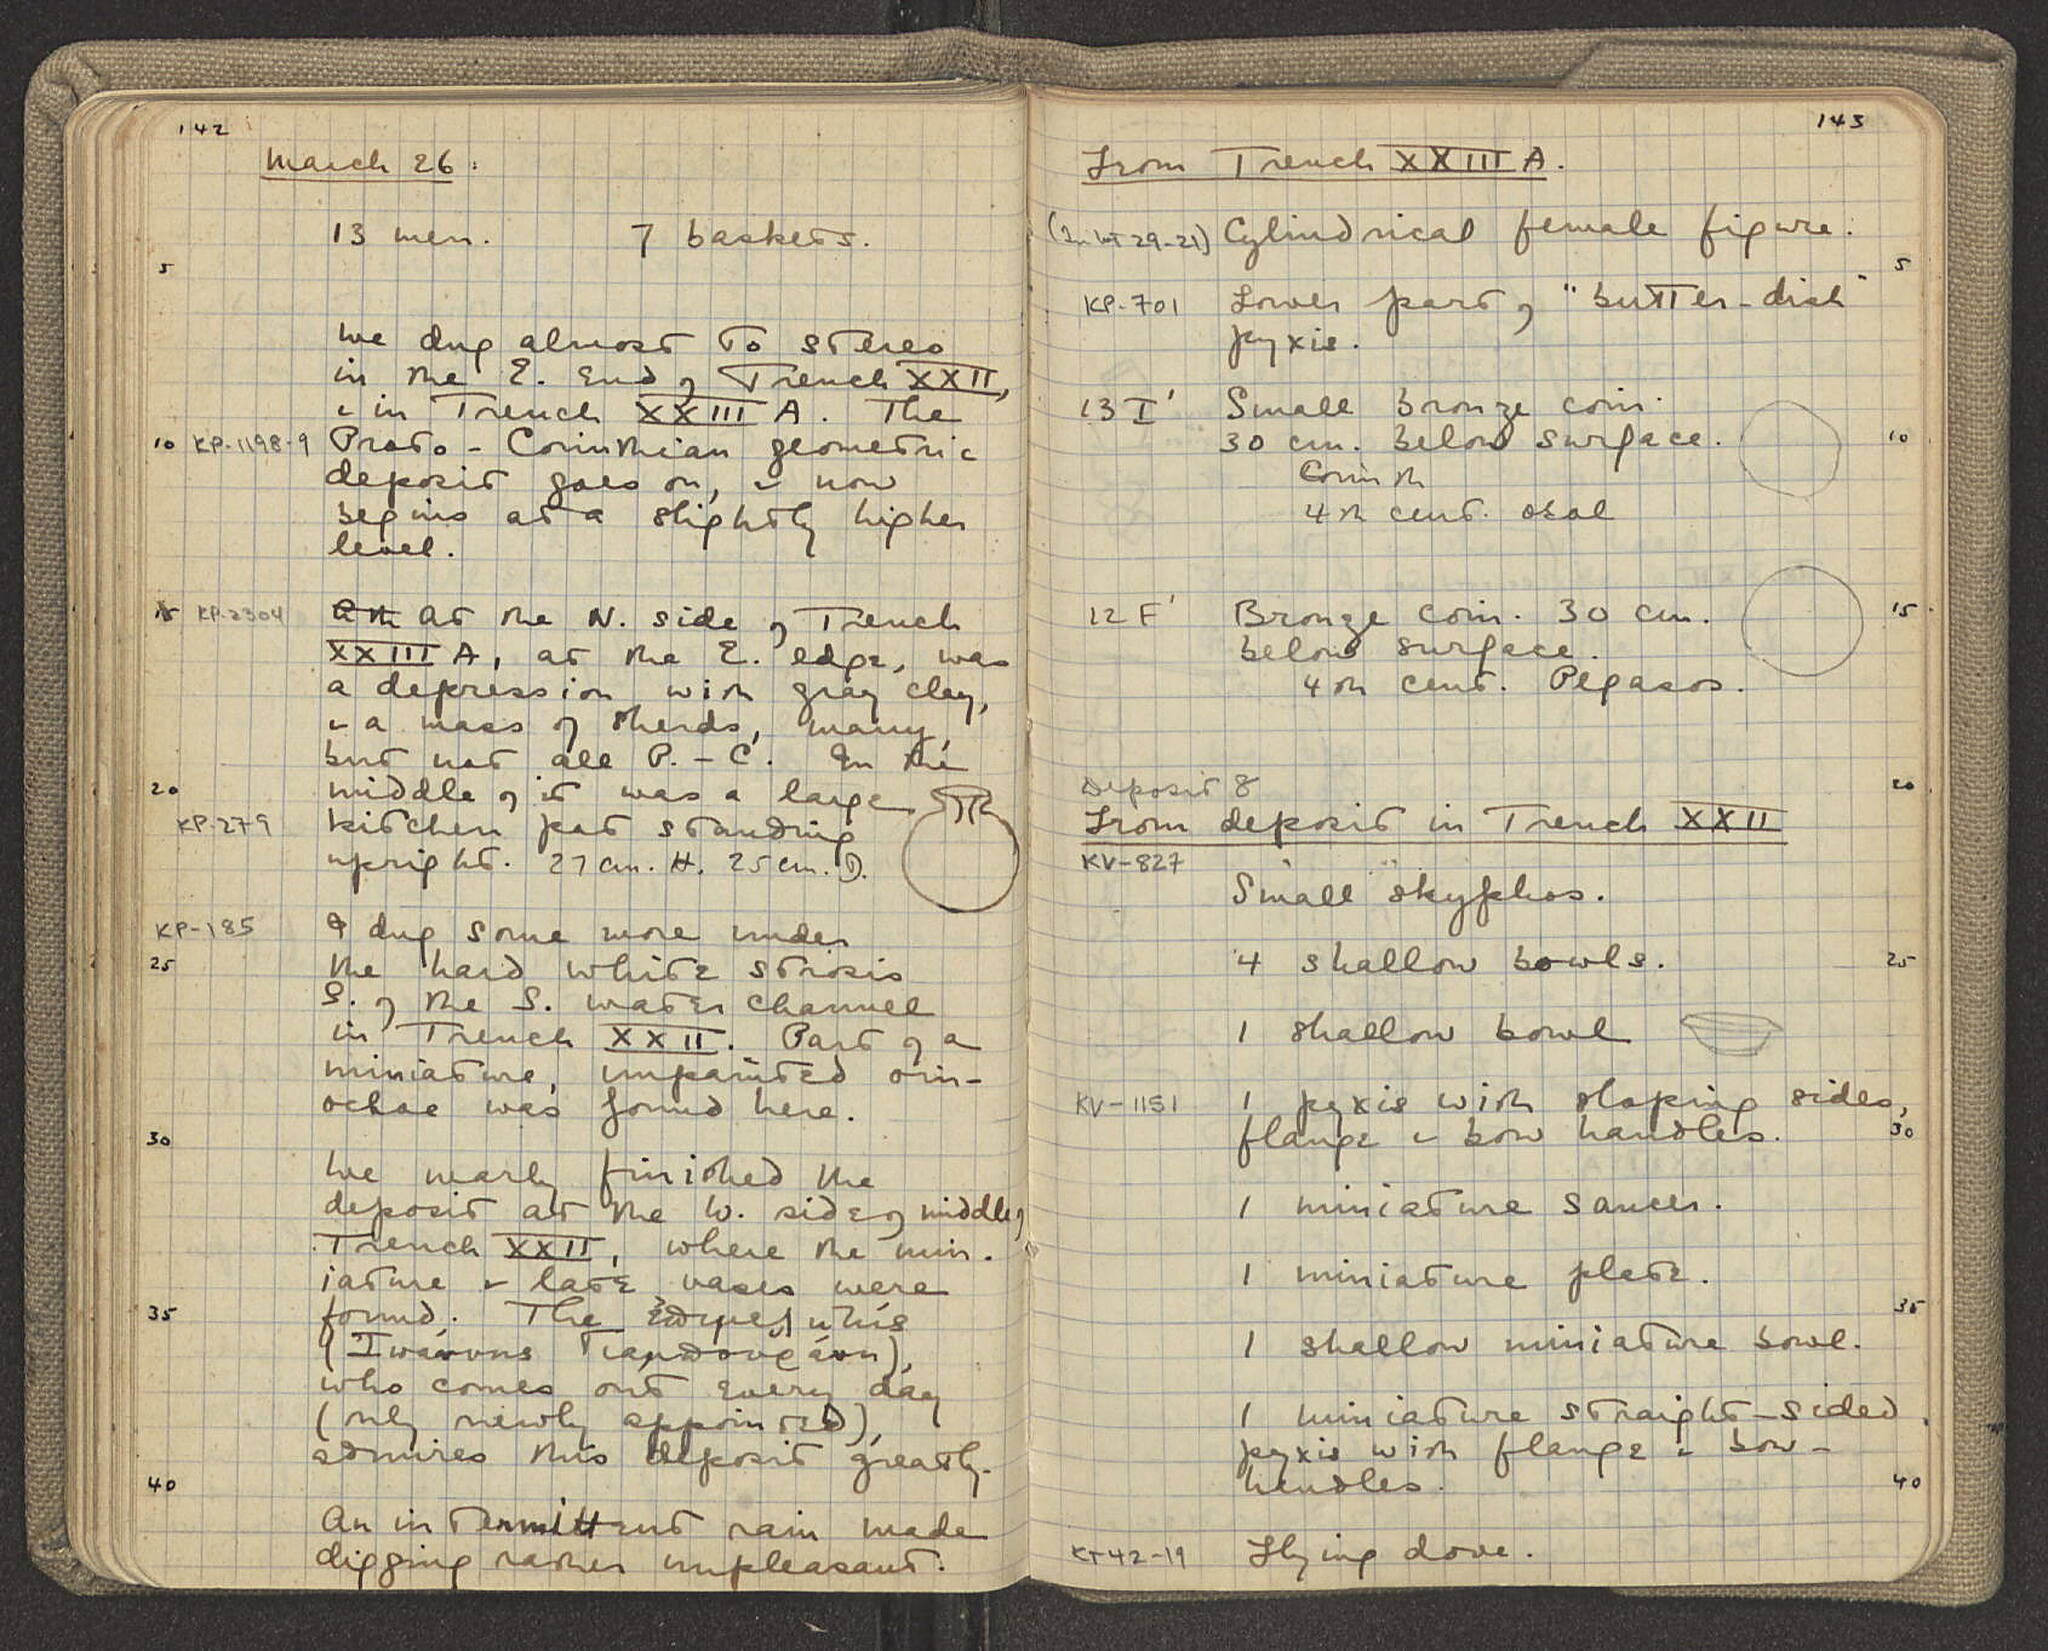 142
March 26:
13 men. 7 baskets.
5
We dug almost to stereo
in the E. end of Trench XXII,
& in Trench XXIII A. The
10 KP-1198-9 Proto-Corinthian geometric
deposit goes on, & now
begins at a slightly higher
level.
15 KP-2304 At the N. side of Trench
XXIII A, at the E. edge, was
a depression with gray clay,
& a mass of sherds, many,
but not all P.-C. In the
20 middle of it was a large
KP-279 kitchen pot standing
upright. 27 cm. H. 25 cm. D.
KP-185 I dug some more under
25 the hard white strosis
S. of the S. water channel
in Trench XXII. Part of a
miniature, unpainted oin-
ochoe was found here.
30
We nearly finished the
deposit at the W. side of middle of
Trench XXII, where the min-
iature & late vases were
35 found. The
who comes out every day
(only newly appointed),
admires this deposit greatly.
40
An intermittent rain made
digging rather unpleasant.
143
From Trench XXIII A.
(In lot 29-21) Cylindrical female figure.
5
KP-701 Lower part of "butter-dish"
pyxis.
13 I' Small bronze coin.
30 cm. below surface. 10
Corinth
4th cent. obol
12 F' Bronze coin. 30 cm. 15
below surface.
4th cent. Pegasos.
Deposit 8 20
From deposit in Trench XXII
KV-827
Small "skyphos.
4 shallow bowls. 25
1 shallow bowl
KV-1151 1 pyxis with sloping sides,
flange & bow handles. 30
1 miniature saucer.
1 miniature plate.
35
1 shallow miniature bowl.
1 miniature straight-sided
pyxis with flange & bow-
handles. 40
KT42-19 Flying dove.